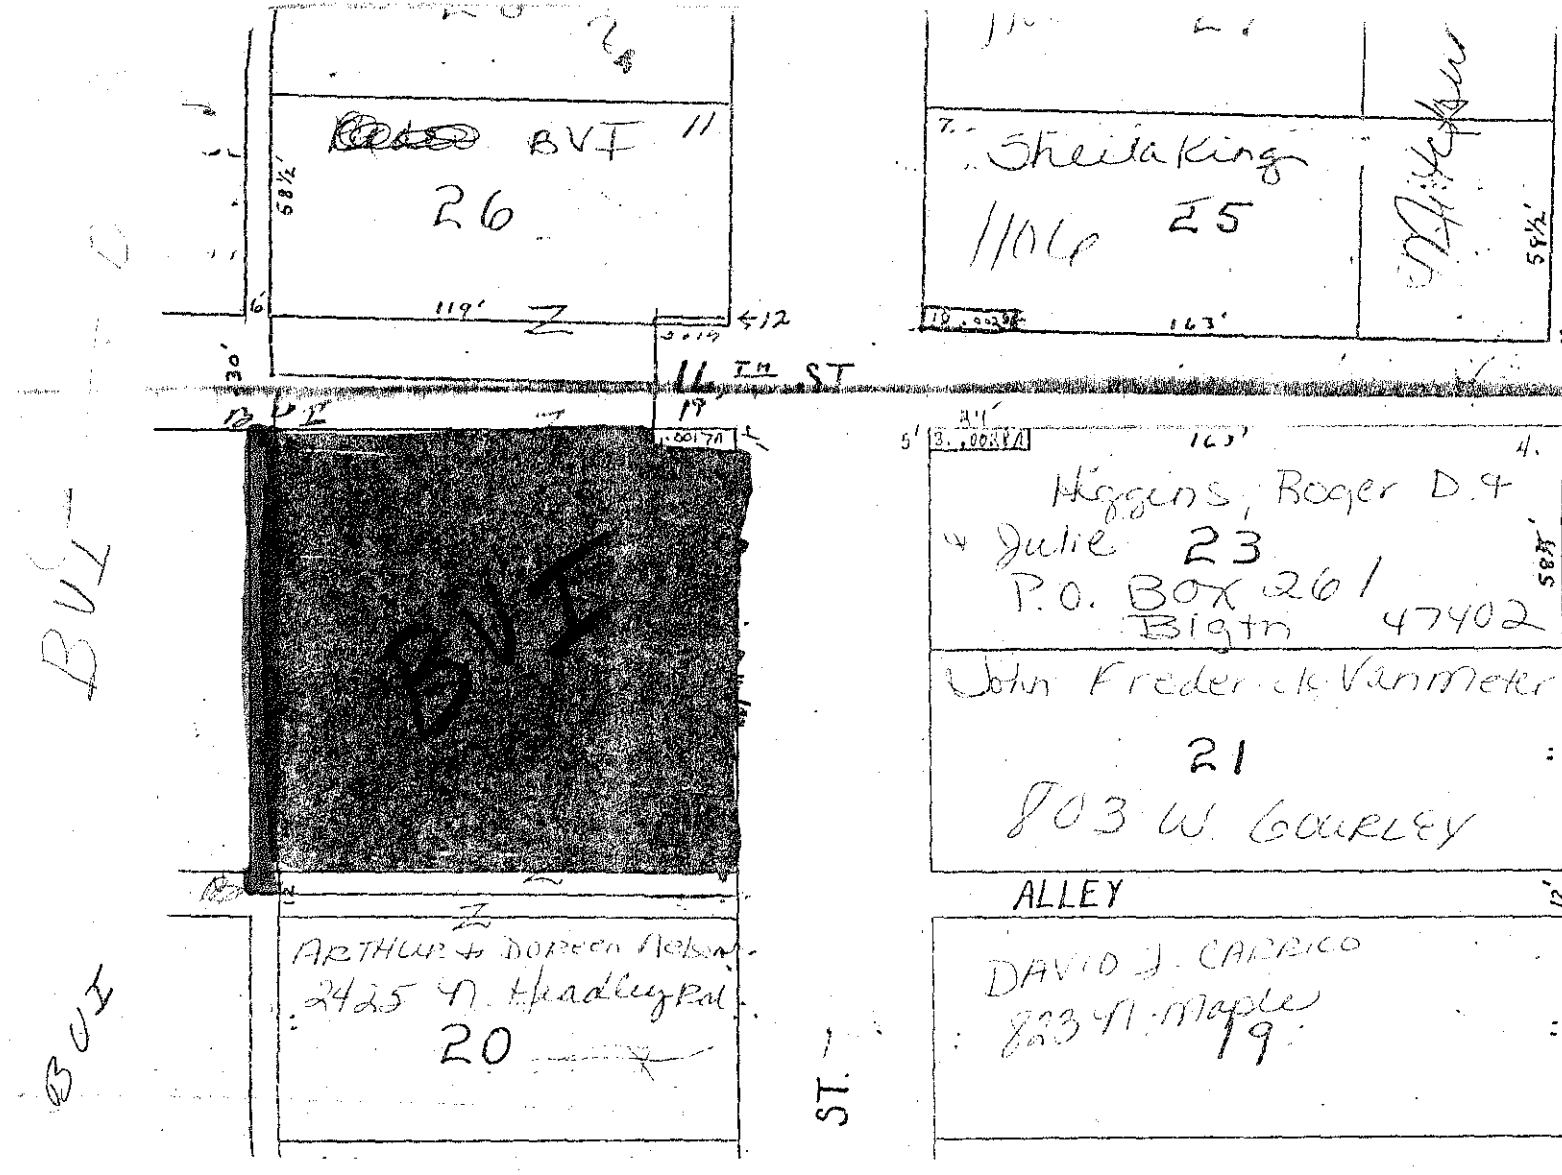 BVI 11
26
58½'
6'
119'
Z
12
7.
Sheila King
1106 25
Mitchiner
58½'
163'
30'
11TH ST
BVI
Z
19'
.0017A
BVI
BVI
5' 3.
163'
4.
Higgins, Roger D. &
& Julie 23
P.O. Box 261
Blgtn 47402
John Frederick Vanmeter
21
803 W. GOURLEY
Z
ALLEY
12'
Z
ARTHUR + DOREEN Nelson
2425 N. Headley Rd
20
DAVID J. CARRICO
823 N. Maple
19
ST.
BVI